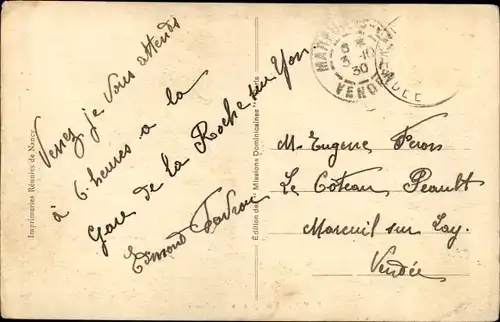 Venez je vous attends
à 6 heures a la
Gare de la Roche sur Yon
Edmond
Imprimeries Réunies de Nancy
Missions Dominicaines
6 *
3 -10
30
VENDÉE
M. Eugene
Le Coteau Peault
Mareuil sur Lay.
Vendée